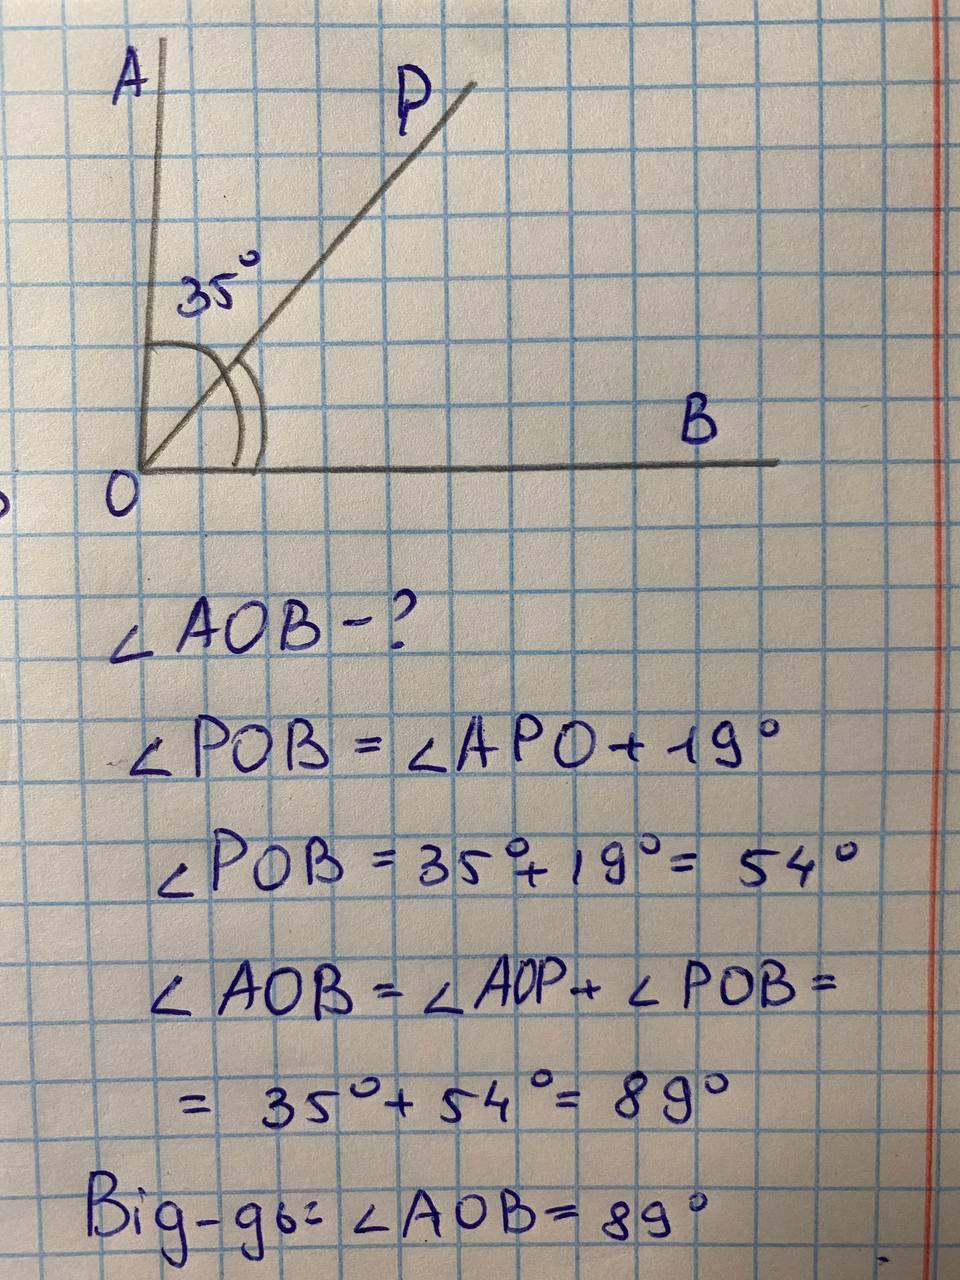 A
P
35°
B
O
∠AOB - ?
∠POB = ∠APO + 19°
∠POB = 35° + 19° = 54°
∠AOB = ∠AOP + ∠POB =
= 35° + 54° = 89°
Від-дь: ∠AOB = 89°